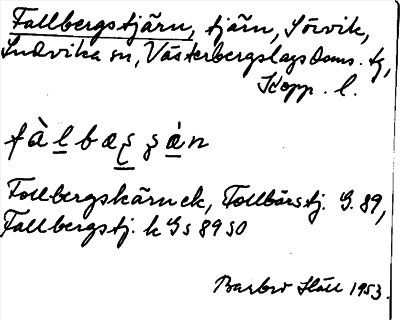 Fallbergstjärn, tjärn, Sörvik,
Ludvika sn, Västerbergslags doms. tg,
Kopp. l.
fàlbæʂʂán
Follbergskärnek, Follbärstj. G. 89,
Fallbergstj. k Gs 89 50
Barbro Häll 1953.